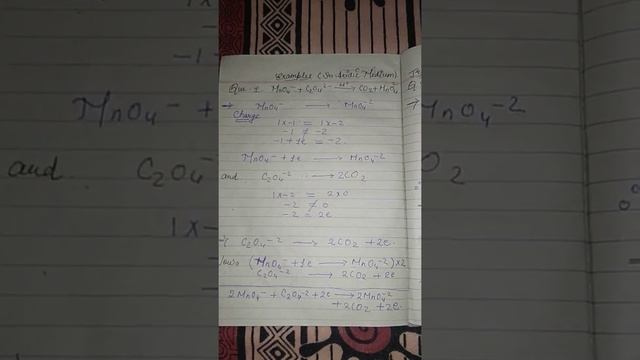 Examples (In Acidic Medium)
Que. 1 MnO₄⁻ + C₂O₄²⁻ —H⁺→ CO₂ + MnO₄²⁻
→ MnO₄⁻ → MnO₄⁻²
Charge
1x-1 = 1x-2
-1 ≠ -2
-1+1e = -2
MnO₄⁻ + 1e → MnO₄⁻²
and C₂O₄⁻² → 2CO₂
1x-2 = 2x0
-2 ≠ 0
-2 = 2e
C₂O₄⁻² → 2CO₂ + 2e
(MnO₄⁻ + 1e → MnO₄⁻²)x2
C₂O₄⁻² → 2CO₂ + 2e
2MnO₄⁻ + C₂O₄⁻² + 2e → 2MnO₄⁻²
+ 2CO₂ + 2e